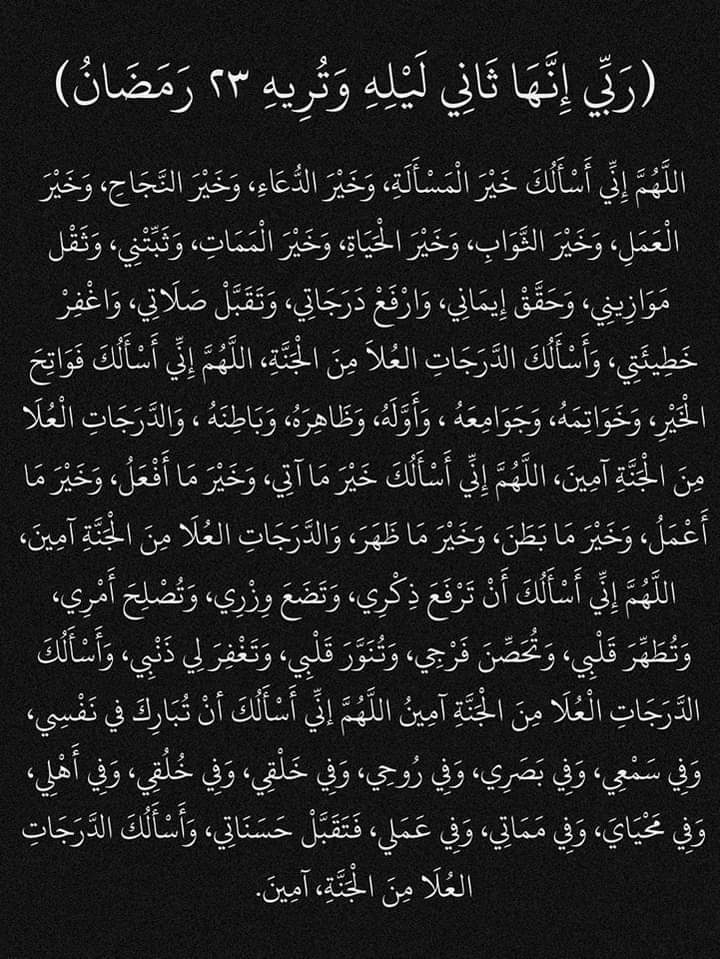 (رَبِّي إِنَّهَا ثَانِي لَيْلِهِ وَتُرِيهِ ٢٣ رَمَضَانُ)
اللَّهُمَّ إِنِّي أَسْأَلُكَ خَيْرَ الْمَسْأَلَةِ، وَخَيْرَ الدُّعَاءِ، وَخَيْرَ النَّجَاحِ، وَخَيْرَ
الْعَمَلِ، وَخَيْرَ الثَّوَابِ، وَخَيْرَ الْحَيَاةِ، وَخَيْرَ الْمَمَاتِ، وَثَبِّتْنِي، وَثَقْل
مَوَازِينِي، وَحَقَّقْ إِيمَانِي، وَارْفَعْ دَرَجَاتِي، وَتَقَبَّلْ صَلَاتِي، وَاغْفِرْ
خَطِيئَتِي، وَأَسْأَلُكَ الدَّرَجَاتِ العُلاَ مِنَ الْجَنَّةِ، اللَّهُمَّ إِنِّي أَسْأَلُكَ فَوَاتِحَ
الْخَيْرِ، وَخَوَاتِمَهُ، وَجَوَامِعَهُ ، وَأَوَّلَهُ، وَظَاهِرَهُ، وَبَاطِنَهُ ، وَالدَّرَجَاتِ الْعُلَا
مِنَ الْجَنَّةِ آمِينَ، اللَّهُمَّ إِنِّي أَسْأَلُكَ خَيْرَ مَا آتِي، وَخَيْرَ مَا أَفْعَلُ، وَخَيْرَ مَا
أَعْمَلُ، وَخَيْرَ مَا بَطَنَ، وَخَيْرَ مَا ظَهَرَ، وَالدَّرَجَاتِ العُلَا مِنَ الْجَنَّةِ آمِينَ،
اللَّهُمَّ إِنِّي أَسْأَلُكَ أَنْ تَرْفَعَ ذِكْرِي، وَتَضَعَ وِزْرِي، وَتُصْلِحَ أَمْرِي،
وَتُطَهِّرَ قَلْبِي، وَتُحَصِّنَ فَرْجِي، وَتُنَوَّرَ قَلْبِي، وَتَغْفِرَ لِي ذَنْبِي، وَأَسْأَلُكَ
الدَّرَجَاتِ الْعُلَا مِنَ الْجَنَّةِ آمِينُ اللَّهُمَّ إنِّي أَسْأَلُكَ أنْ تُبَارِكَ في نَفْسِي،
وَفِي سَمْعِي، وَفِي بَصَرِي، وَفِي رُوحِي، وَفِي خَلْقِي، وَفِي خُلُقِي، وَفِي أَهْلِي،
وَفِي مَحْيَايَ، وَفِي مَمَاتِي، وَفِي عَمَلي، فَتَقَبَّلْ حَسَنَاتِي، وَأَسْأَلُكَ الدَّرَجَاتِ
العُلَا مِنَ الْجَنَّةِ، آمِينَ.